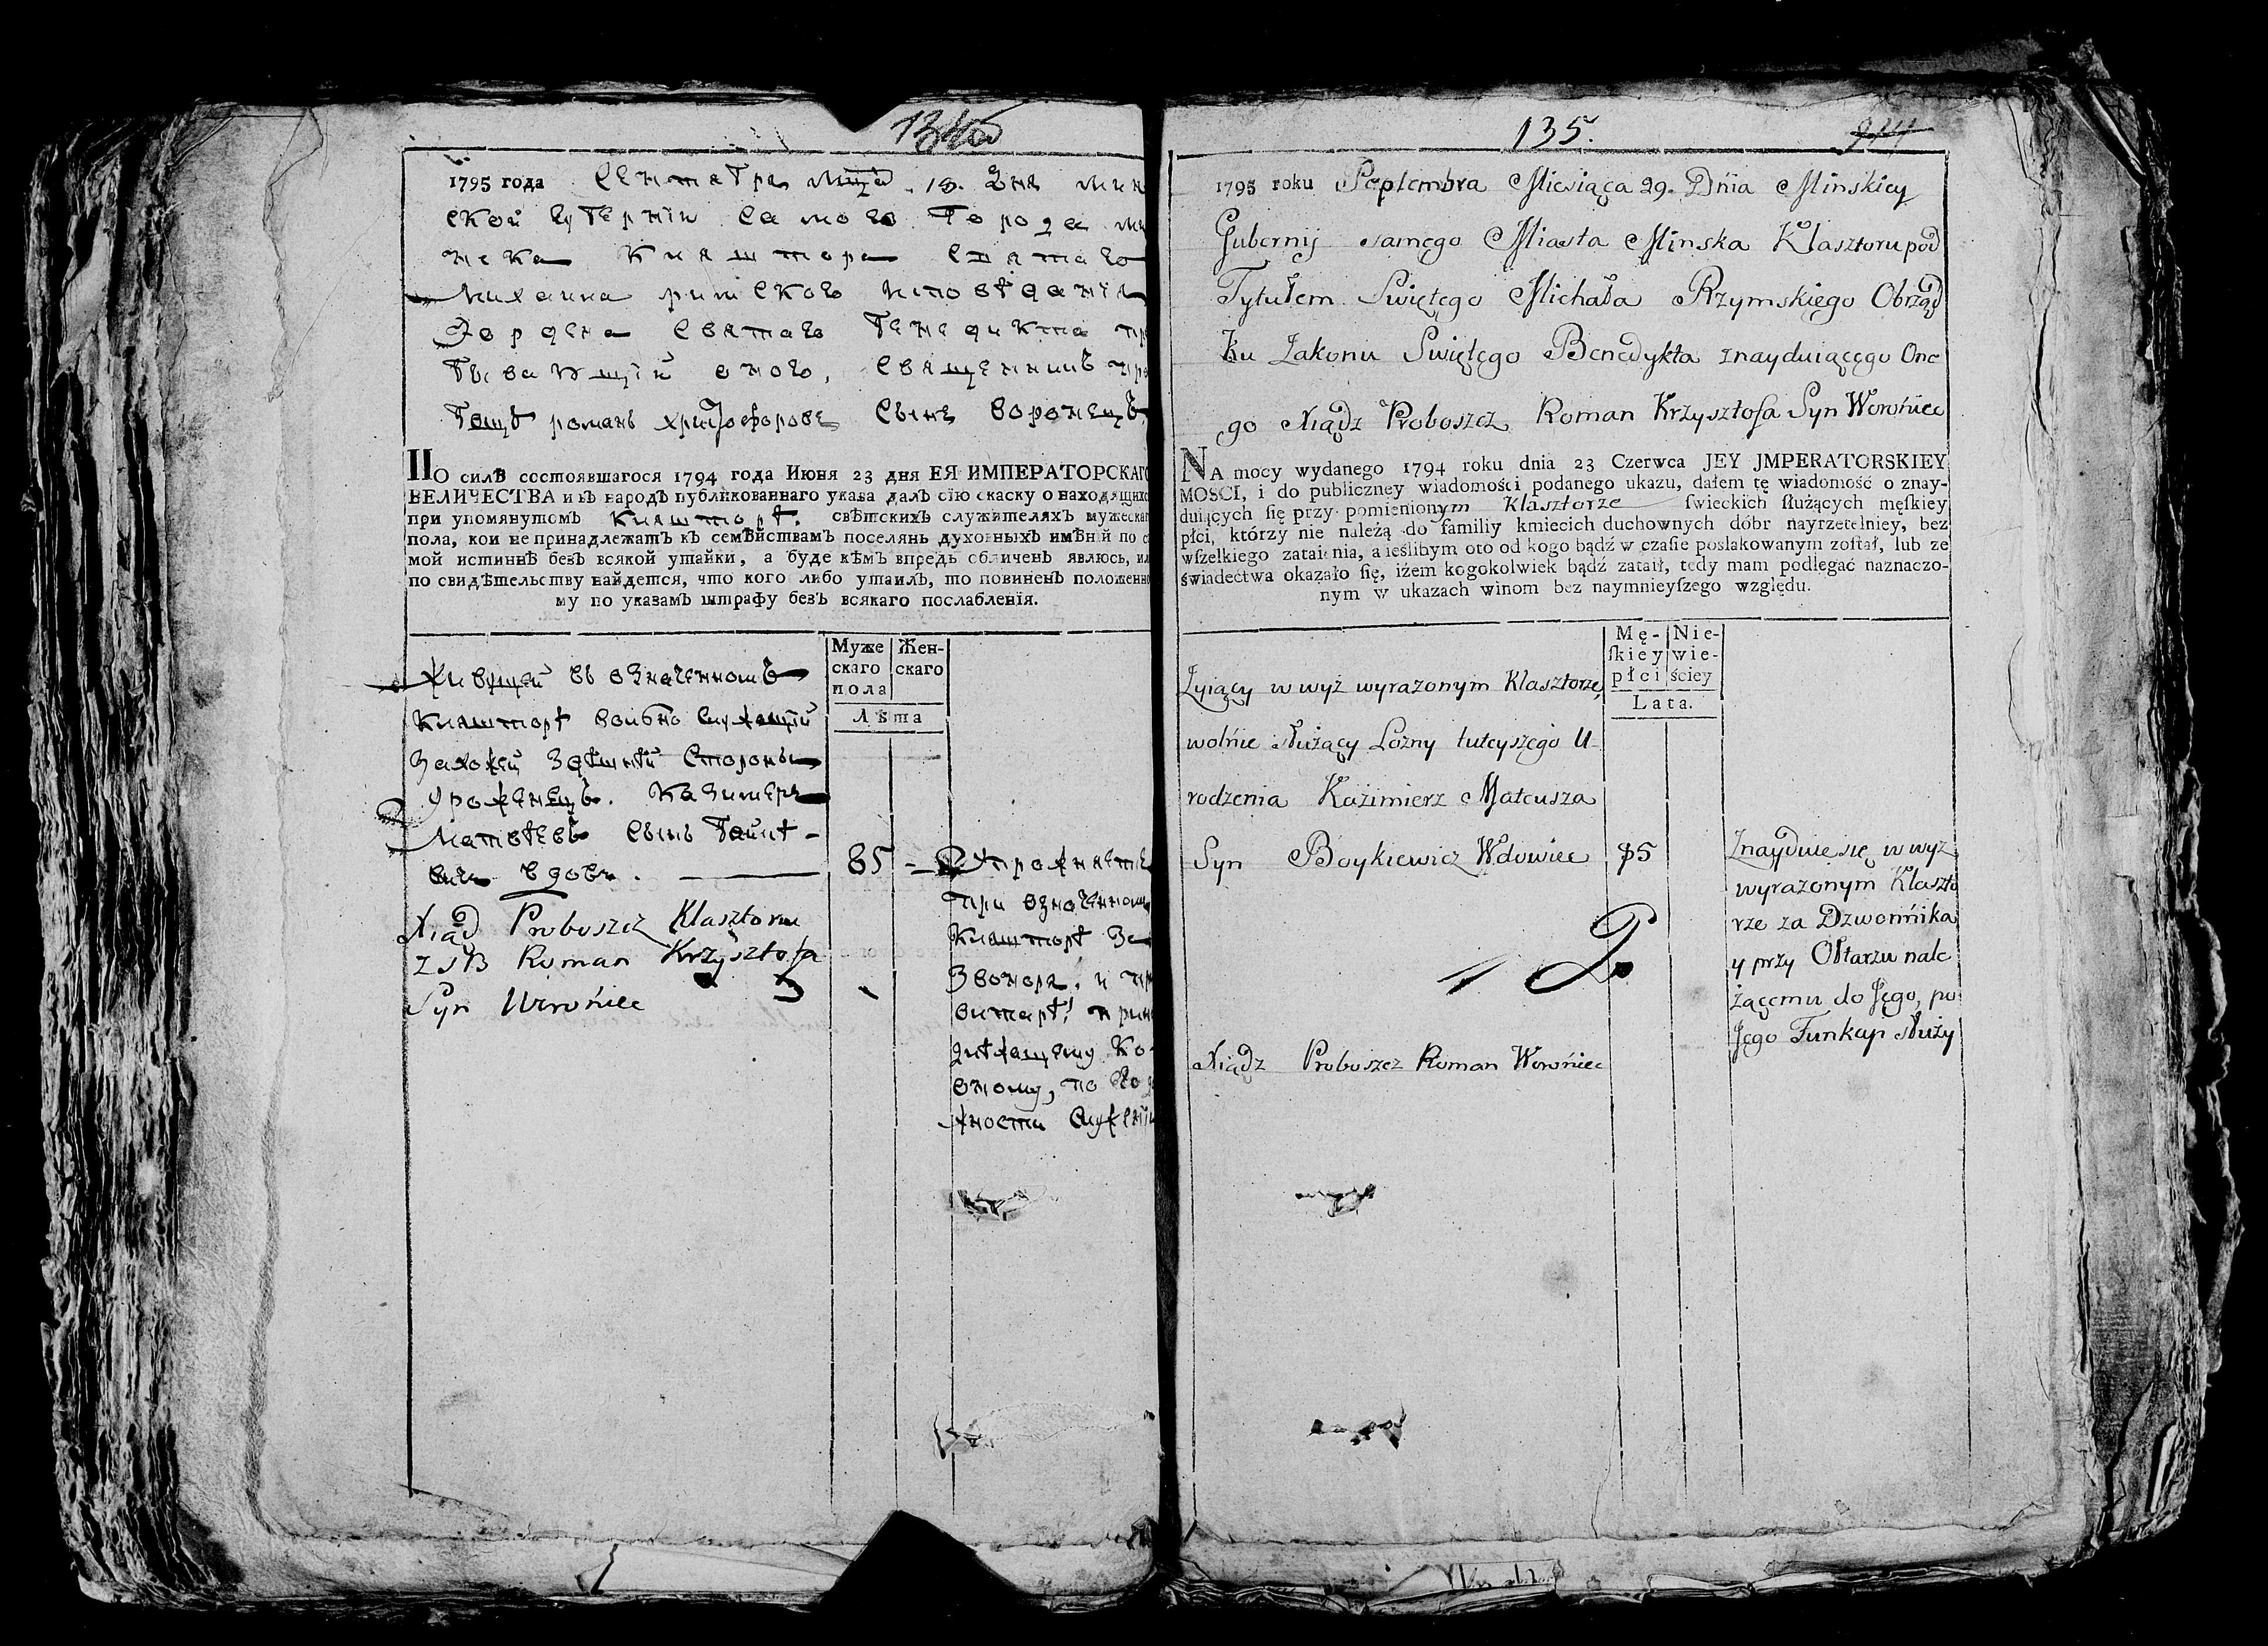 134об
1795 года Сентабра мца 18. дня мин
ской губернїи самого города ми
нска кляштора святаго
Михаила римского исповѣданїя
Эордена святаго бенедикта пре
бывающїй оного, священникъ про
бощъ романъ христофоровъ сынъ воронецъ
ПО силѣ состоявшагося 1794 года Июня 23 дня ЕЯ ИМПЕРАТОРСКАГО
ВЕЛИЧЕСТВА и въ народъ публикованнаго указа далъ сїю скаску о находящихс
при упомянутомъ кляшторѣ. свѣтскихъ служителяхъ мужескаг
пола, кои не принадлежатъ къ семѣйствамъ поселянъ духовныхъ имѣнїй по с
мой истиннѣ безъ всякой утайки, а буде кѣмъ впредь обличенъ явлюсь, ил
по свидѣтельству найдется, что кого либо утаилъ, то повиненъ положенно
му по указамъ штрафу безъ всякаго послабленїя.
Муже
скаго
пола
Жен-
скаго
Лѣта
Живущей въ означенномъ
кляшторѣ волно служащїй
захожей здѣшнѣй стороны
уроженецъ. Казимеръ
Матвѣевъ сынъ бойкѣ-
вичъ вдовъ. 85 -
Упражняетц
при означенном
кляшторѣ за
звонора. и пр
олтарѣ! прин
длѣжащему ко
оному, по его д
жности служенїи
Xiąd Proboszcz Klasztoru
Z S B Roman Krzysztofa
Syn Woroniec
135.
944
1795 roku Septembra Miesiąca 29. Dnia Minskiey
Gubernij samego Miasta Minska Klasztoru pod
Tytułem Swiętego Michała Rzymskiego Obrząd
ku Zakonu Swiętego Benedykta znayduiącego One
go Xiądz Proboszcz Roman Krzysztofa Syn Woroniec
NA mocy wydanego 1794 roku dnia 23 Czerwca JEY JMPERATORSKIEY
MOSCI, i do publiczney wiadomości podanego ukazu, dałem tę wiadomość o znay-
duiących ſię przy pomienionym Klasztorze ſwieckich ſłużących męſkiey
płci, którzy nie należą do familiy kmiecich duchownych dóbr nayrzetelniey, bez
wſzelkiego zataienia, a ieślibym oto od kogo bądź w czaſie poslakowanym zoſtał, lub ze
świadectwa okazało ſię, iżem kogokolwiek bądź zataił, tedy mam podlegać naznaczo-
nym w ukazach winom bez naymnieyſzego względu.
Mę-
ſkiey
płci
Nie-
wie-
ściey
Lata.
Żyiący w wyż wyrażonym Klasztorze
wolnie służący Lożny tuteyszego U-
rodzenia Kazimierz Mateusza
Syn Boykiewicz Wdowiec 85
Znayduie się w wyż
wyrażonym Klaszto
rze za Dzwonnika
y przy Ołtarzu nale
żącemu do Jego, po
Jego Funkcyi służy
Xiądz Proboszcz Roman Woroniec